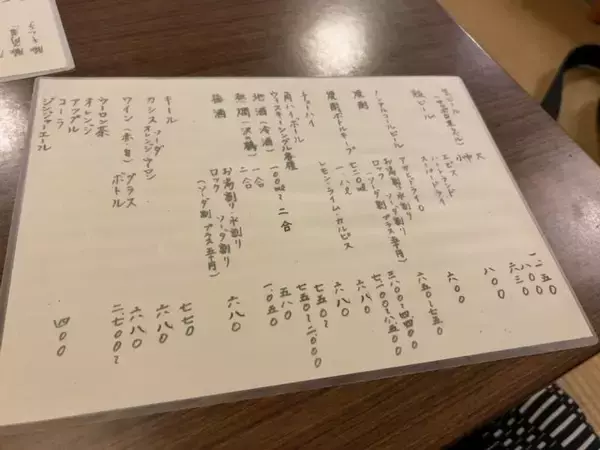 生ビール
大 一、二五〇
中 八〇〇
小 六三〇
瓶ビール
エビス
ハートランド
スーパードライ
八〇〇
ノンアルコールビール
アサヒドライ〇
六〇〇
焼酎
お湯割り・水割り
ロック ソーダ割り
(ソーダ割 プラス五十円)
六五〇〜七五〇
焼酎ボトルキープ
七二〇ml
三八〇〇〜四四〇〇
一・八l
七一〇〇〜八五〇〇
チューハイ
レモン・ライム・カルピス
六八〇
角ハイボール
七五〇〜
ウィスキーシングル各種
七五〇〜二〇〇〇
地酒(冷酒)
一〇〇ml〜二合
熱燗(沢の鶴)
一合 五八〇
二合 一、〇五〇
梅酒
お湯割り・水割り
ロック・ソーダ割り
(ソーダ割 プラス五十円)
六八〇
キール
七七〇
カシス ソーダ
オレンジ
ウーロン
六八〇
ワイン(赤・白)
グラス 六八〇
ボトル 二、七〇〇〜
ウーロン茶
オレンジ
アップル
コーラ
ジンジャーエール
四〇〇